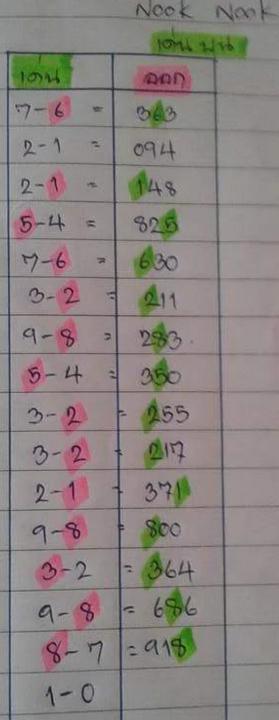 Nook Nook
เด่น บน
เด่น ออก
7-6 = 363
2-1 = 094
2-1 = 148
5-4 = 825
7-6 = 630
3-2 = 211
9-8 = 283
5-4 = 350
3-2 = 255
3-2 = 217
2-1 = 371
9-8 = 800
3-2 = 364
9-8 = 686
8-7 = 918
1-0